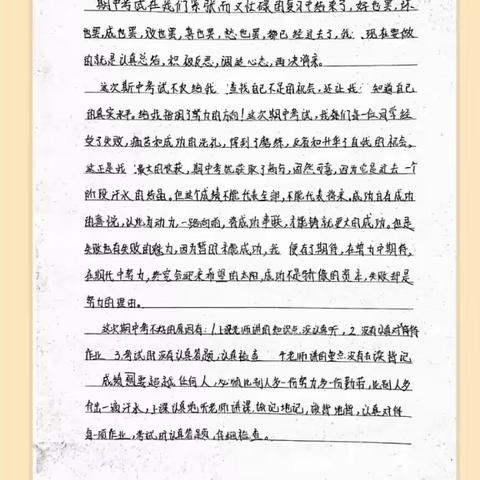 期中考试在我们紧张而又忙碌的复习中结束了,好也罢,坏
也罢,成也罢,败也罢,喜也罢,愁也罢,都已经过去了,我们现在要做
的就是认真总结,积极反思,调整心态,再决将来。
这次期中考试不仅给我们查找自己不足的机会,还让我们知道自己
的真实水平。给我指明了努力的方向!这次期中考试,我们每一位同学经
受了失败,痛苦和成功的洗礼,得到了磨练,反省和升华了自我的机会。
这正是我们最大的收获,期中考试获取了高分,固然可喜,因为它是过去一个
阶段汗水的结晶。但这个成绩不能代表全部,不能代表将来。成功自有成功
的喜悦,以此为动力,一路向前,将成功串联,才能铸就更大的成功。但是
失败也有失败的魅力,因为暂时才能成功,我们便有了期待,在努力中期待,
在期待中努力,终究会迎来希望的太阳,成功不是骄傲的资本,失败却是
努力的理由。
这次期中考不好的原因有:1上课老师讲的知识点没认真听,2没有认真对待
作业 3考试时没有认真答题,认真检查 4老师讲的重点没有去读背记
成绩要超越任何人,必须比别人多一份努力多一份勤劳,比别人多
付出一滴汗水,上课认真地听老师讲课,做记地记,该背地背,认真对待
每一项作业,考试时认真答题,仔细检查。